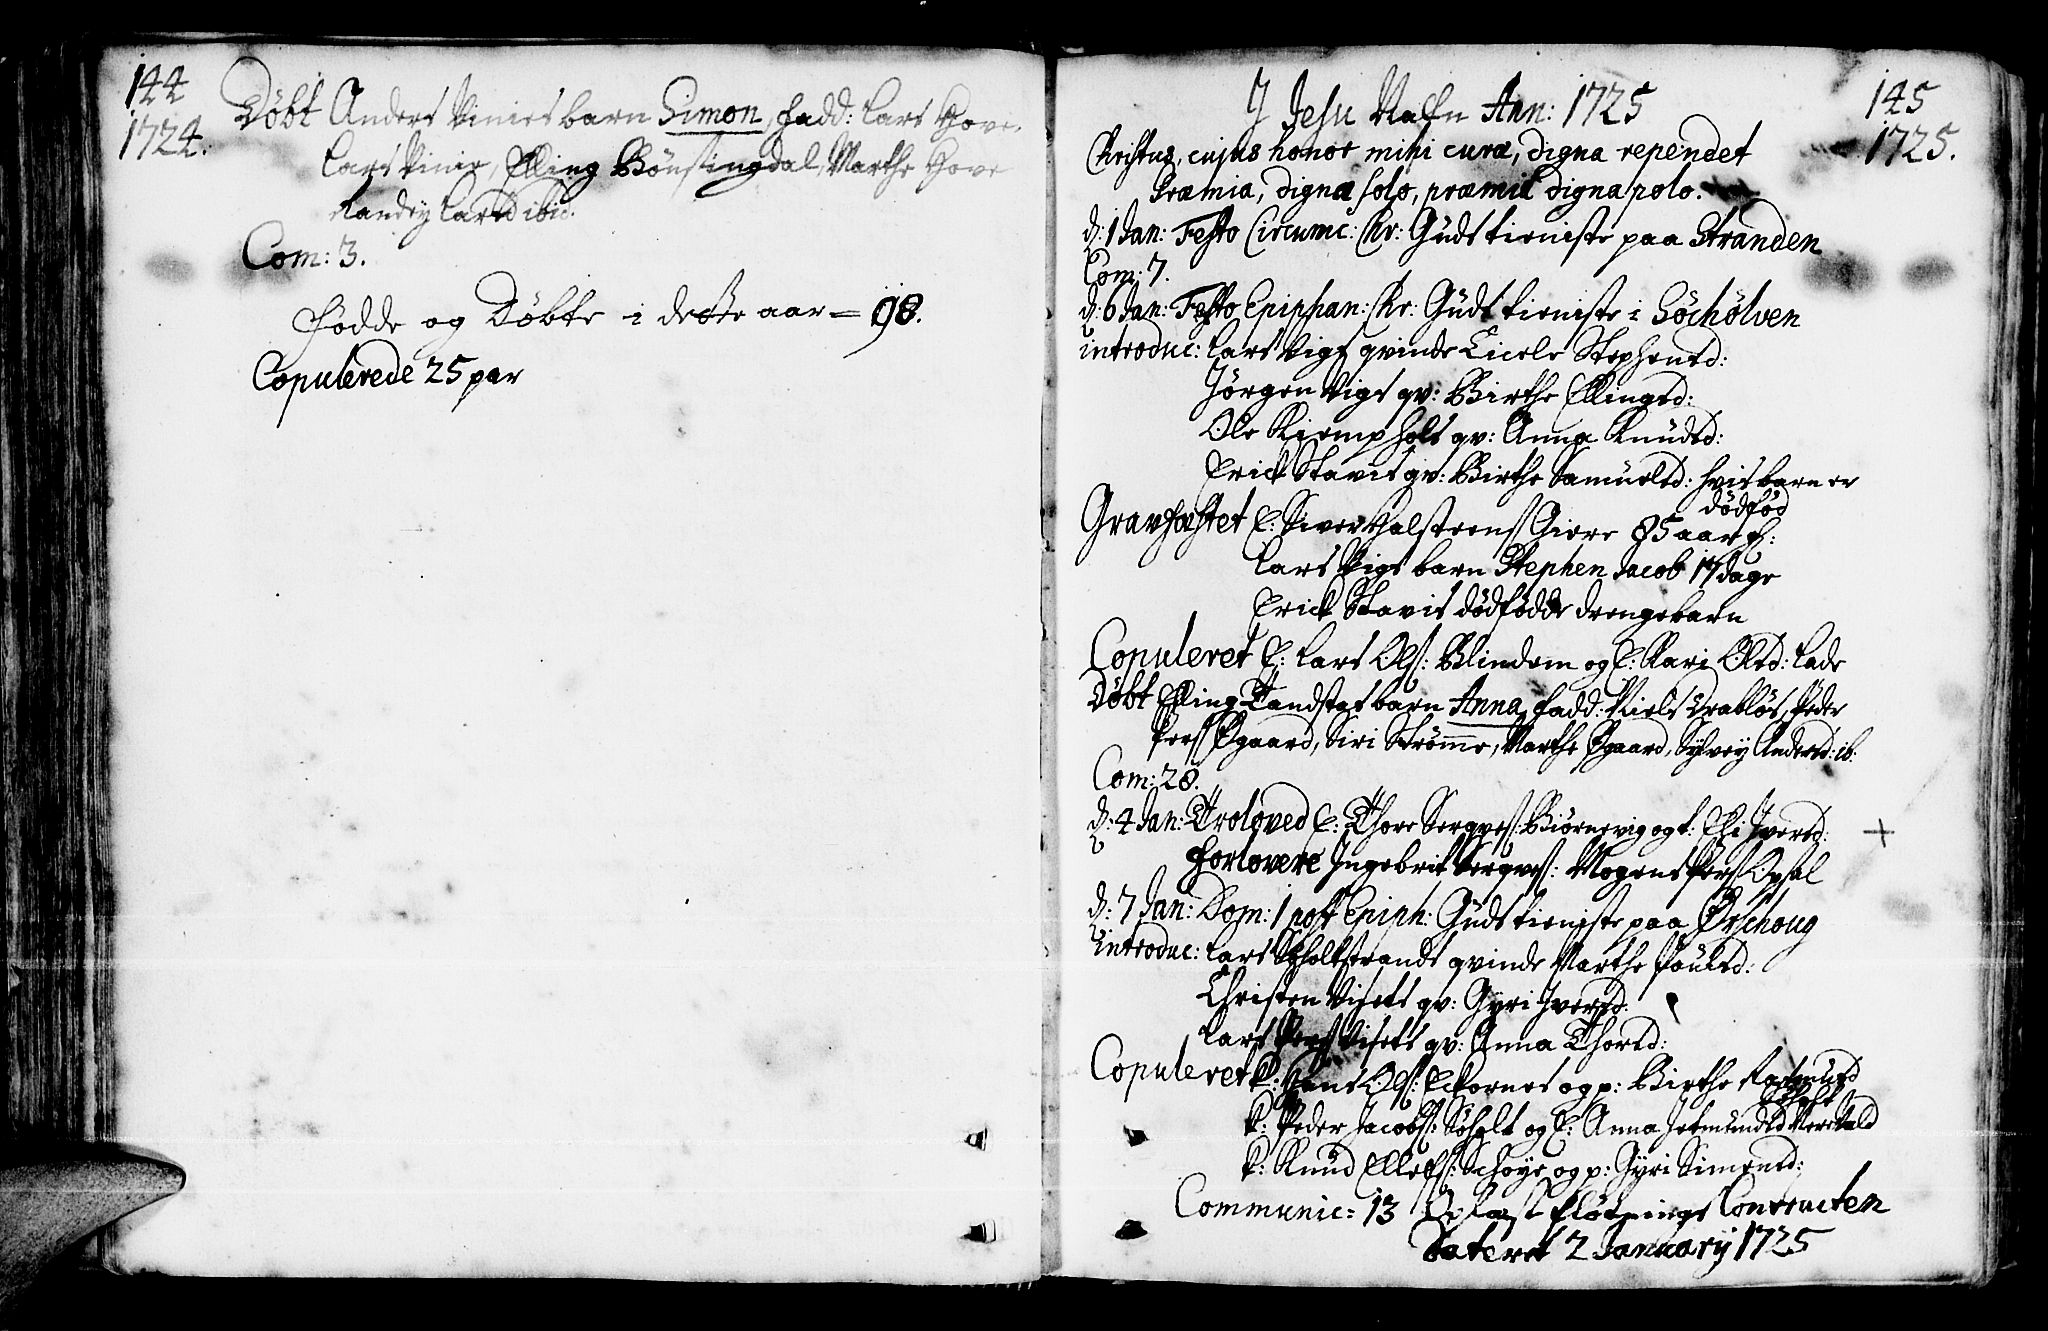 144
1724.
Døbt Anders Vinies barn Simon, fadd: Lars Hove,
Lars Vinie, Elling Bønstingdal, Marthe Hove
Randey Larsd ibid.
Com: 3.
Fødde og Døbte i dette aar = 98.
Copulerede 25 par
145
1725.
J Jesu Nafn Ann: 1725
Christus, cujus honor mihi curæ, digna rependet
Præmia, digna solo, præmia digna polo.
d: 1 Jan: Festo Circumc: Chr: Guds tieniste paa Stranden
Com: 7.
d: 6 Jan: Festo Epiphan: Chr: Guds tieniste i Søcholven
introduc: Lars Vigs qvinde Cicele Stephensd:
Jørgen Vigs qv: Birthe Ellingsd:
Ole Kiempholt qv: Anna Knudsd:
Erick Stavis qv: Birthe Samuelsd: hvis barn er
dødfød
Gravfæstet E: Siver Halsteens Giere 85 aar
Lars Vigs barn Stephen Jacob 17 dage
Erick Stavis dødfødde drengebarn
Copuleret E: Lars Ols: Blindem og E: Kari Olsd: Lade
Døbt Elling Tandstas barn Anna, fadd: Niels Drabløs, Peder
Pers Øgaard, Siri Strømme, Marthe Øgaard, Sylvey Andersd: ib:
Com: 28.
d: 4 Jan: Troloved E: Thore Sergves: Biørnevig og Eli Iversd:
Forlovere Ingebrit Sergves: Mogens Pers Opsal
d: 7 Jan: Dom: 1 post Epiph: Guds tieniste paa Ørschoug
introduc: Lars Scholtstrands qvinde Marthe Poulsd:
Christen Visets qv: Gyri Iversd.
Lars Pers Visets qv: Anna Thorsd:
Copuleret Hans Ols: Ecfornes og p: Birthe Rasmusd
Peder Jacobs: Søholt og E: Anna Jetmundsd
Knud Ellefs: Schoye og p: Gyri Simonsd:
Communic: 13 fløtnings Contructen
Dateret 2 January 1725